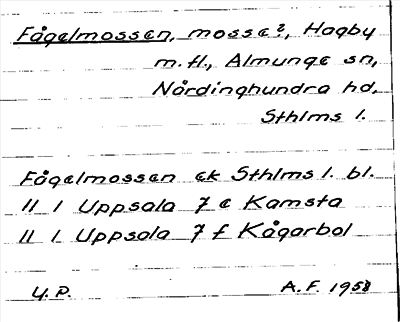 Fågelmossen, mosse?, Hagby
m.fl., Almunge sn,
Närdinghundra hd,
Sthlms l.
Fågelmossen ek Sthlms l. bl.
11 I Uppsala 7 e Kamsta
11 I Uppsala 7 f Kågarbol
U.P. A.F. 1958